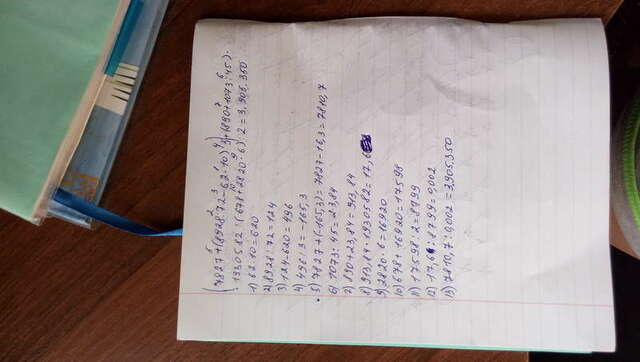 (7827+(8928:72-62·10):3)+(890+1073:45)·
·1930582:(678+2820·6):2=3,905,350
1) 62·10=620
2) 8928:72=124
3) 124-620=496
4) 496:3=-165,3
5) 7827+(-165,3)=7827-16,3=7810,7
6) 1073:45=23,84
7) 890+23,84=913,84
8) 913,84·1930582=17,6
9) 2820·6=16920
10) 678+16920=17598
11) 17598:2=8799
12) 17,6:8799=0,002
13) 7810,7:0,002=3,905,350